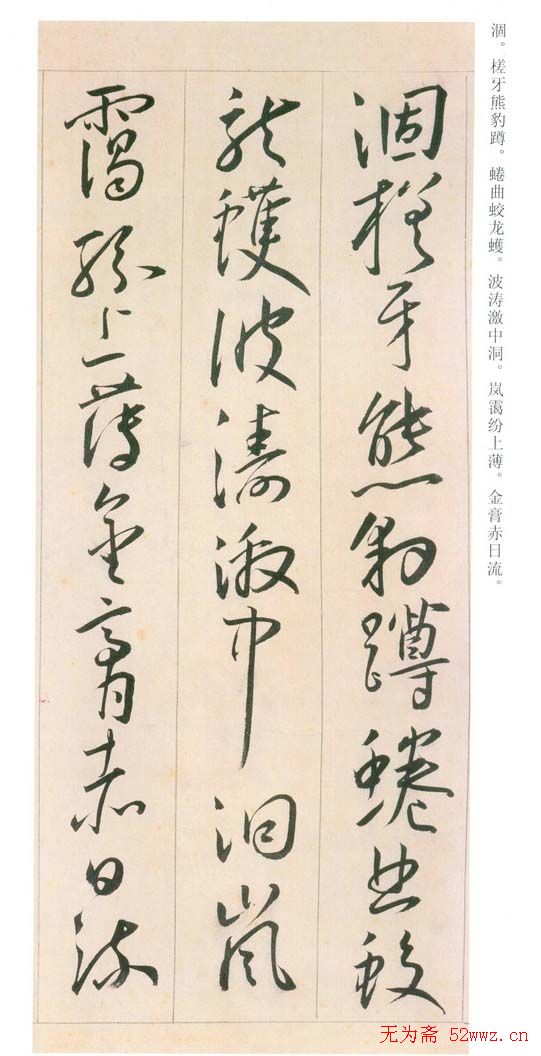 涸。槎牙熊豹蹲。蜷曲蛟龙蠖。波涛激中洞。岚霭纷上薄。金膏赤日流。
涸槎牙熊豹蹲蜷曲蛟
龍蠖波濤激中洞嵐
靄紛上薄金膏赤日流
无为斋 52wwz.cn